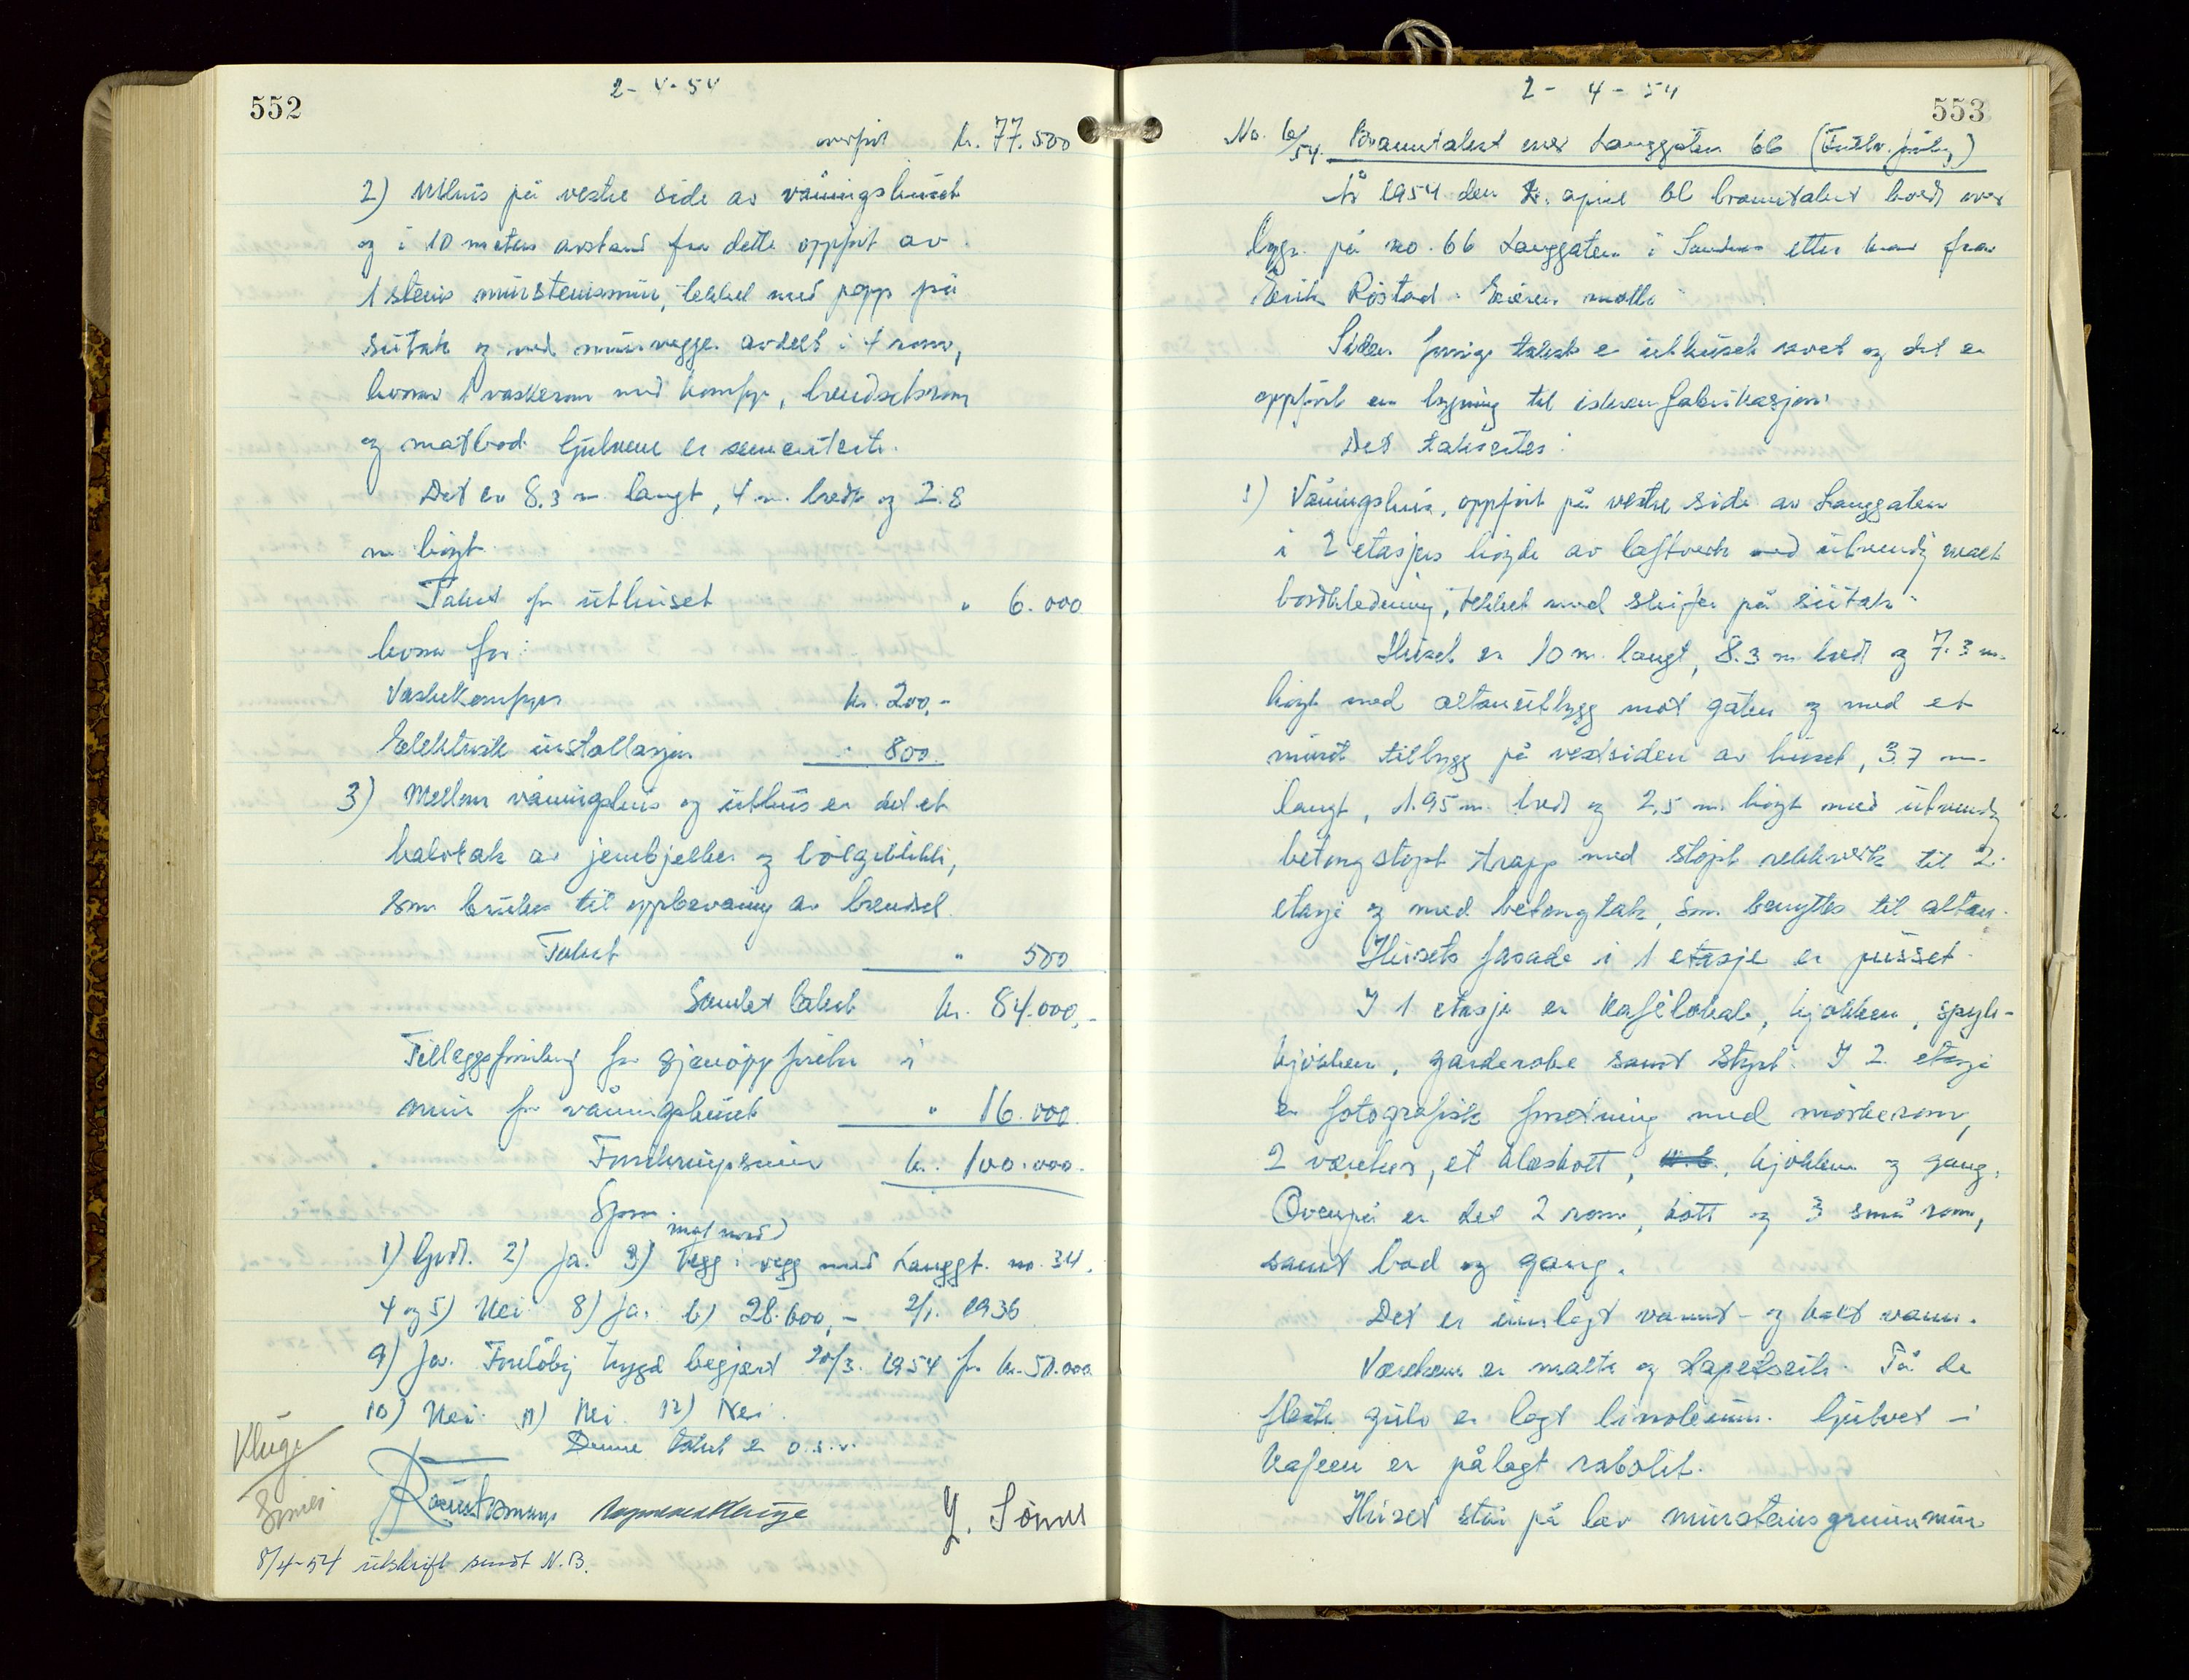 552
2-4-54
overført kr. 77.500
2) Uthus på vestre side av våningshuset
og i 10 meters avstand fra dette oppført av
1 steins murstensmur, tekket med papp på
sutak og med murvegger avdelt i 4 rom,
hvorav 1 vaskerom med komfyr, brendselsrom
og matbod. Gulvene er sementerte.
Det er 8.3 m. langt, 4 m. bredt og 2.8
m. høgt.
Takst for uthuset " 6.000
hvorav for:
Vaskekomfyr kr. 200,-
Elektrisk installasjon " 800.
3) Mellom våningshus og uthus er det et
halvtak av jernbjelker og bølgeblikk,
som brukes til oppbevaring av brendsel.
Takst " 500
Samlet takst kr. 84.000,-
Tilleggsforsikring for gjenoppførelse i
mur for våningshuset " 16.000
Forsikringssum kr. 100.000.
Spm.
mot nord
1) Godt. 2) Ja. 3) Vegg i vegg med Langgt. no. 34.
4 og 5) Nei. 8) Ja. b) 28.600,- 2/1. 1936
9) Ja. Foreløbig trygd begjært 20/3. 1954 for kr. 50.000
10) Nei. 11) Nei. 12) Nei.
Denne takst er o.s.v.
Kluge
Sømes
Y. Sømes
8/4-54 utskrift sendt N.B.
553
2-4-54
No. 6/54. Branntakst over Langgaten 66
År 1954 den 2. april ble branntakst holdt over
bygn. på no. 66 Langgaten i Sandnes etter krav fra
Erik Røstad. Eieren møtte.
Siden forrige takst er uthuset revet og det er
oppført en bygning til iskremfabrikasjon.
Det takseres:
1) Våningshus, oppført på vestre side av Langgaten
i 2 etasjes høgde av laftverk med utvendig malt
bordkledning, tekket med skifer på sutak.
Huset er 10 m. langt, 8.3 m. bredt og 7.3 m.
høgt med altanutbygg mot gaten og med et
murt tilbygg på vestsiden av huset, 3.7 m.
langt, 1.95 m. bredt og 2,5 m. høgt med utvendig
betongstøpt trapp med støpt rekkverk til 2.
etasje og med betongtak, som benyttes til altan.
Husets fasade i 1 etasje er pusset.
I 1 etasje er kafélokale, kjøkken, spyle-
kjøkken, garderobe samt
I 2. etasje
er fotografisk forretning med mørkerom,
2 værelser, et kleskott, kjøkken og gang.
Ovenpå er det 2 rom, kott og 3 små rom,
samt bad og gang.
Det er innlagt varmt- og kalt vann.
Værelsene er malte og tapetserte. På de
fleste gulv er lagt linoleum. Gulvet i
kafeen er pålagt
Huset står på lav murstensgrunnmur